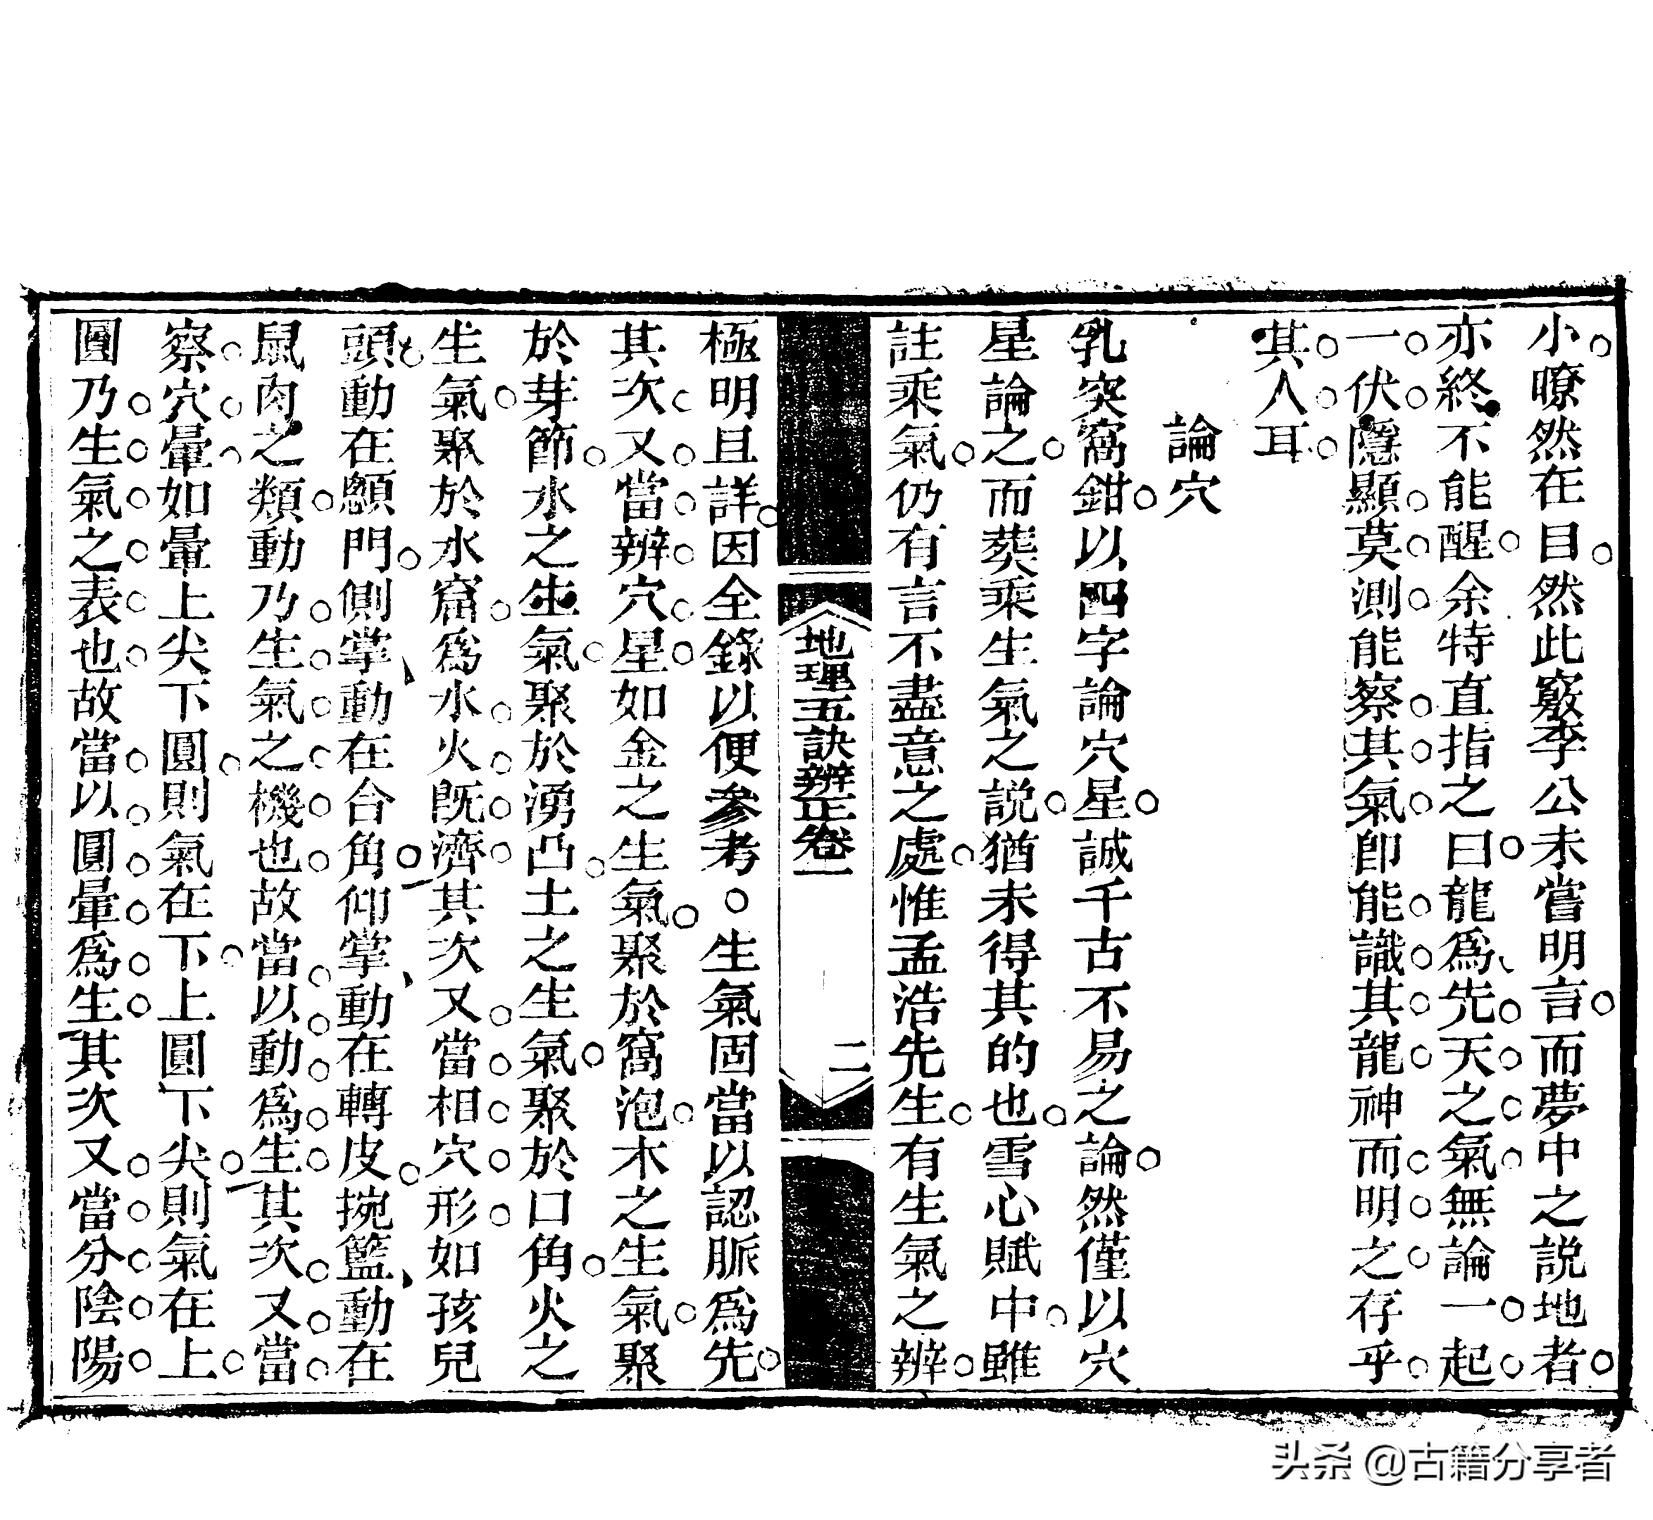 小暸然在目然此竅李公未嘗明言而夢中之説地者
亦終不能醒余特直指之曰龍爲先天之氣無論一起
一伏隱顯莫測能察其氣卽能識其龍神而明之存乎
其人耳
論穴
乳突窩鉗以四字論穴星誠千古不易之論然僅以穴
星論之而葬乘生氣之説猶未得其的也雪心賦中雖
註乘氣仍有言不盡意之處惟孟浩先生有生氣之辨
地理五訣辨正卷一
二
極明且詳因全錄以便參考○生氣固當以認脈爲先
其次又當辨穴星如金之生氣聚於窩泡木之生氣聚
於芽節水之生氣聚於湧凸土之生氣聚於口角火之
生氣聚於水窟爲水火既濟其次又當相穴形如孩兒
頭動在顖門側掌動在合角仰掌動在轉皮挽籃動在
鼠肉之類動乃生氣之機也故當以動爲生其次又當
察穴暈如暈上尖下圓則氣在下上圓下尖則氣在上
圓乃生氣之表也故當以圓暈爲生其次又當分陰陽
头条 @古籍分享者